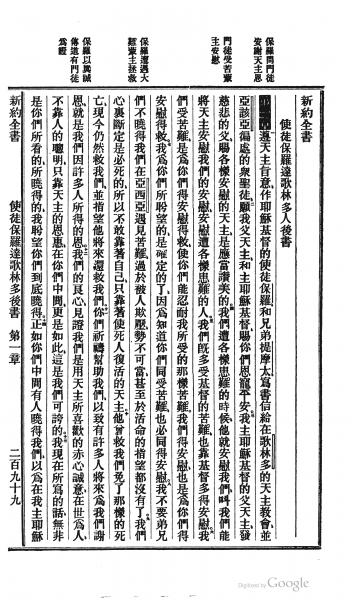 新約全書
使徒保羅達歌林多人後書
保羅問門徒
安謝天主恩
遵天主旨意作耶穌基督的使徒保羅和兄弟提摩太寫書信給在歌林多的天主教會並
亞該亞徧處的眾聖徒願我父天主和主耶穌基督賜你們恩寵平安我主耶穌基督的父天主發
慈悲的父賜各樣安慰的天主是應當讚美的我們遭各樣患難的時候他就安慰我們叫我們能
門徒受苦靠
主安慰
將天主安慰我們的安慰安慰遭各樣患難的人我們既多受基督的苦難也靠基督多得安慰我
們受苦難是爲你們得安慰得救使你們能忍耐我所受的那樣苦難我們得安慰也是爲你們得
安慰得救我爲你們所盼望的是確定的了因爲知道你們同受苦難也必同得安慰我不要弟兄
保羅遭過大
難靠主拯救
們不曉得我們在亞西亞遇見苦難過於被人欺壓勢不可當甚至於活命的指望都沒有了我們
心裏斷定是必死的所以不敢靠著自己只靠著使死人復活的天主他曾救我們免了那樣的死
亡現今仍然救我們並指望他將來還救我們你們祈禱幫助我們以致有許多人將來爲我們謝
保羅以眞誠
傳道有門徒
爲證
恩就是我們因許多人所得的恩我們的良心見證我們是用天主所喜歡的赤心誠意在世爲人
不靠人的聰明只靠天主的恩惠在你們中間更是如此這是我們可誇的我現在所寫的話無非
是你們所看的所曉得的我盼望你們到底曉得正如你們中間有人曉得我們以爲在我主耶穌
新約全書 使徒保羅達歌林多後書 第一章 二百九十九
Digitized by Google